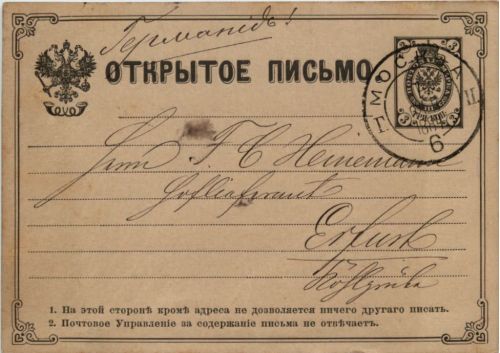 Германія!
ОТКРЫТОЕ ПИСЬМО
МОСКВА
6
3 3
3 3
Herrn F. C. Heinemann
Hoflieferant
Erfurt
1. На этой сторонѣ кромѣ адреса не дозволяется ничего другаго писать.
2. Почтовое Управленіе за содержаніе письма не отвѣчаетъ.